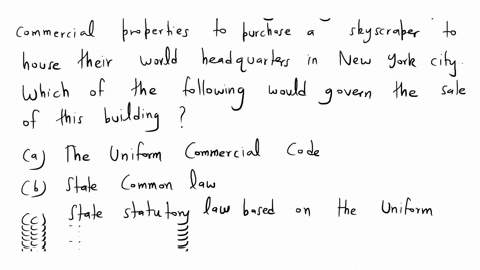 Commercial properties to purchase a skyscraper to
house their world headquarters in New York city.
Which of the following would govern the sale
of this building?
(a) The Uniform Commercial Code
(b) State Common law
(c) State statutory law based on the Uniform